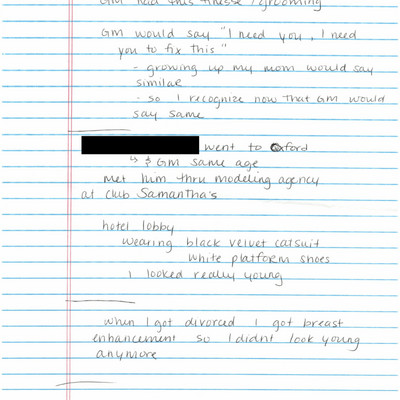 GM had this finesse / grooming
GM would say "I need you, I need
you to fix this"
- growing up my mom would say
similar
- so I recognize now that GM would
say same
went to Oxford
↳ & GM same age
met him thru modeling agency
at club Samantha's
hotel lobby
wearing black velvet catsuit
white platform shoes
I looked really young
when I got divorced I got breast
enhancement so I didnt look young
anymore